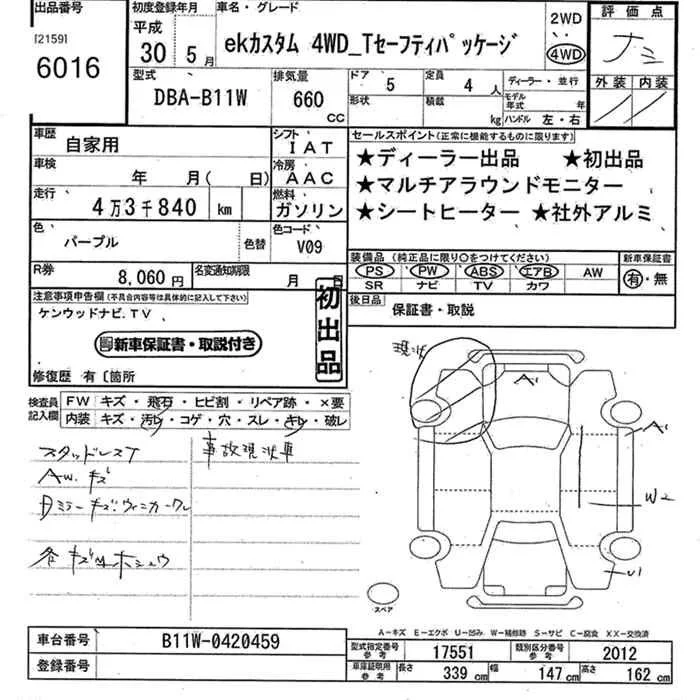 出品番号
[2159]
6016
初度登録年月
平成
30 5月
車名・グレード
ekカスタム 4WD_Tセーフティパッケージ
2WD
4WD
評価点
ナミ
外装 内装
型式
DBA-B11W
排気量
660
CC
ドア 5
形状
定員 4人
積載 kg
ディーラー・並行
モデル年式 年
ハンドル 左・右
車歴
自家用
シフト
IAT
車検
年 月( 日)
冷房
AAC
走行
4万3千840 km
燃料
ガソリン
色
パープル
色替
色コード
V09
R券
8,060円
名変通知期限
月 日
セールスポイント(正常に機能するものに限ります)
★ディーラー出品 ★初出品
★マルチアラウンドモニター
★シートヒーター ★社外アルミ
装備品 (純正品に限り○をつけてください)
PS PW ABS エアB AW
SR ナビ TV カワ
新車保証書
有・無
後日品
保証書・取説
注意事項申告欄(不具合内容等は具体的に記入して下さい)
ケンウッドナビ.TV
新車保証書・取説付き
初出品
修復歴 有〔箇所
検査員記入欄
FW キズ・飛石・ヒビ割・リペア跡・×要
内装 キズ・汚レ・コゲ・穴・スレ・キレ・破レ
スタッドレスT
事故現状車
AW.キズ
各キズ
現状
A1
A1
W2
U1
スペア
A-キズ E-エクボ U-凹み W-補修跡 S-サビ C-腐食 XX-交換済
車台番号
B11W-0420459
登録番号
型式指定番号 参考
17551
類別区分番号 参考
2012
車庫証明用 参考
長さ 339 cm
幅 147 cm
高さ 162 cm